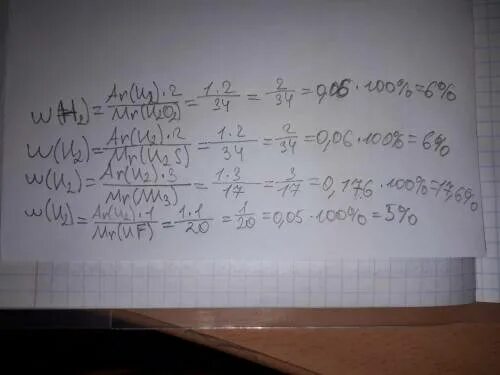 w(H₂) = Ar(H₂)·2 / Mr(H₂O₂) = 1·2 / 34 = 2 / 34 = 0,06 · 100% = 6%
w(H₂) = Ar(H₂)·2 / Mr(H₂S) = 1·2 / 34 = 2 / 34 = 0,06 · 100% = 6%
w(H₂) = Ar(H₂)·3 / Mr(NH₃) = 1·3 / 17 = 3 / 17 = 0,176 · 100% = 17,6%
w(H₂) = Ar(H₂)·1 / Mr(HF) = 1·1 / 20 = 1 / 20 = 0,05 · 100% = 5%